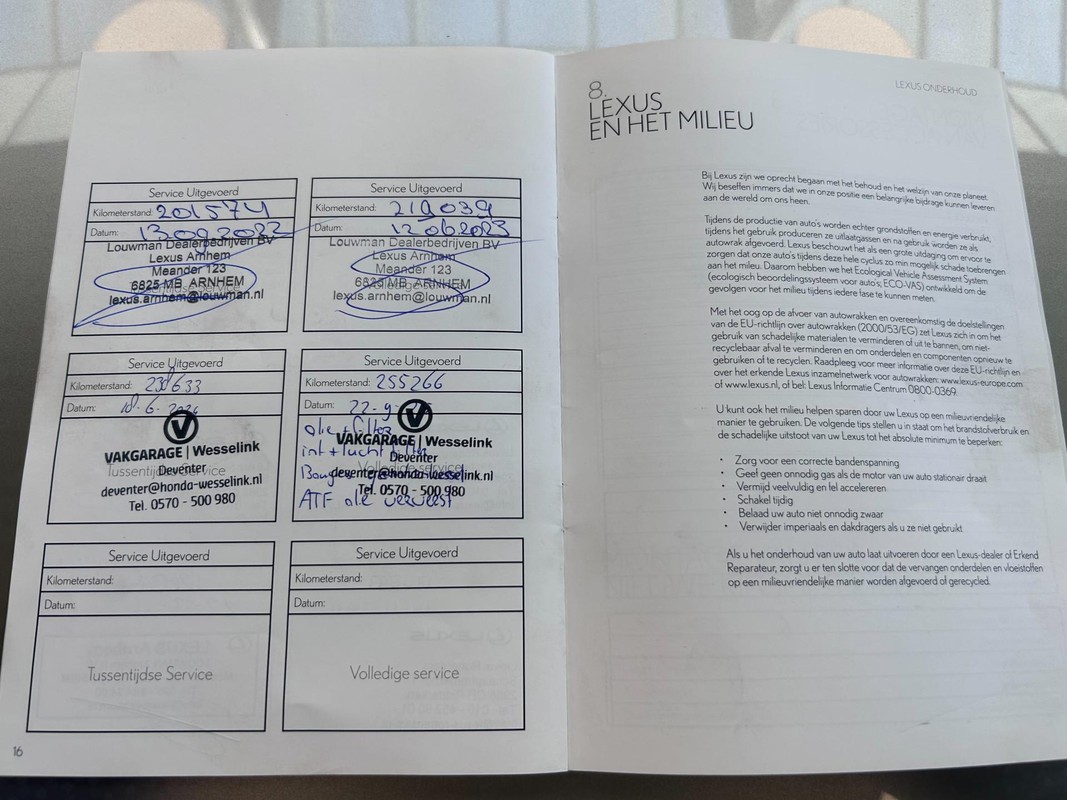 Service Uitgevoerd
Kilometerstand: 201574
Datum: 13092022
Louwman Dealerbedrijven BV
Lexus Arnhem
Meander 123
6825 MB ARNHEM
lexus.arnhem@louwman.nl
Service Uitgevoerd
Kilometerstand: 219039
Datum: 12062023
Louwman Dealerbedrijven BV
Lexus Arnhem
Meander 123
6825 MB ARNHEM
lexus.arnhem@louwman.nl
Service Uitgevoerd
Kilometerstand: 238633
Datum: 18.6.2024
VAKGARAGE | Wesselink
Tussentijdse Service
Deventer
deventer@honda-wesselink.nl
Tel. 0570 - 500 980
Service Uitgevoerd
Kilometerstand: 255266
Datum: 22-9-
olie + filter
VAKGARAGE | Wesselink
int + lucht filter
Deventer
Volledige service
deventer@honda-wesselink.nl
Tel. 0570 - 500 980
ATF olie ververst
Service Uitgevoerd
Kilometerstand:
Datum:
Tussentijdse Service
Service Uitgevoerd
Kilometerstand:
Datum:
Volledige service
16
LEXUS ONDERHOUD
8.
LEXUS
EN HET MILIEU
Bij Lexus zijn we oprecht begaan met het behoud en het welzijn van onze planeet.
Wij beseffen immers dat we in onze positie een belangrijke bijdrage kunnen leveren
aan de wereld om ons heen.
Tijdens de productie van auto's worden echter grondstoffen en energie verbruikt,
tijdens het gebruik produceren ze uitlaatgassen en na gebruik worden ze als
autowrak afgevoerd. Lexus beschouwt het als een grote uitdaging om ervoor te
zorgen dat onze auto's tijdens deze hele cyclus zo min mogelijk schade toebrengen
aan het milieu. Daarom hebben we het Ecological Vehicle Assessment System
(ecologisch beoordelingssysteem voor auto's; ECO-VAS) ontwikkeld om de
gevolgen voor het milieu tijdens iedere fase te kunnen meten.
Met het oog op de afvoer van autowrakken en overeenkomstig de doelstellingen
van de EU-richtlijn over autowrakken (2000/53/EG) zet Lexus zich in om het
gebruik van schadelijke materialen te verminderen of uit te bannen, om niet-
recyclebaar afval te verminderen en om onderdelen en componenten opnieuw te
gebruiken of te recyclen. Raadpleeg voor meer informatie over deze EU-richtlijn en
over het erkende Lexus inzamelnetwerk voor autowrakken: www.lexus-europe.com
of www.lexus.nl, of bel: Lexus Informatie Centrum 0800-0369.
U kunt ook het milieu helpen sparen door uw Lexus op een milieuvriendelijke
manier te gebruiken. De volgende tips stellen u in staat om het brandstofverbruik en
de schadelijke uitstoot van uw Lexus tot het absolute minimum te beperken:
• Zorg voor een correcte bandenspanning
• Geef geen onnodig gas als de motor van uw auto stationair draait
• Vermijd veelvuldig en fel accelereren
• Schakel tijdig
• Belaad uw auto niet onnodig zwaar
• Verwijder imperiaals en dakdragers als u ze niet gebruikt
Als u het onderhoud van uw auto laat uitvoeren door een Lexus-dealer of Erkend
Reparateur, zorgt u er ten slotte voor dat de vervangen onderdelen en vloeistoffen
op een milieuvriendelijke manier worden afgevoerd of gerecycled.